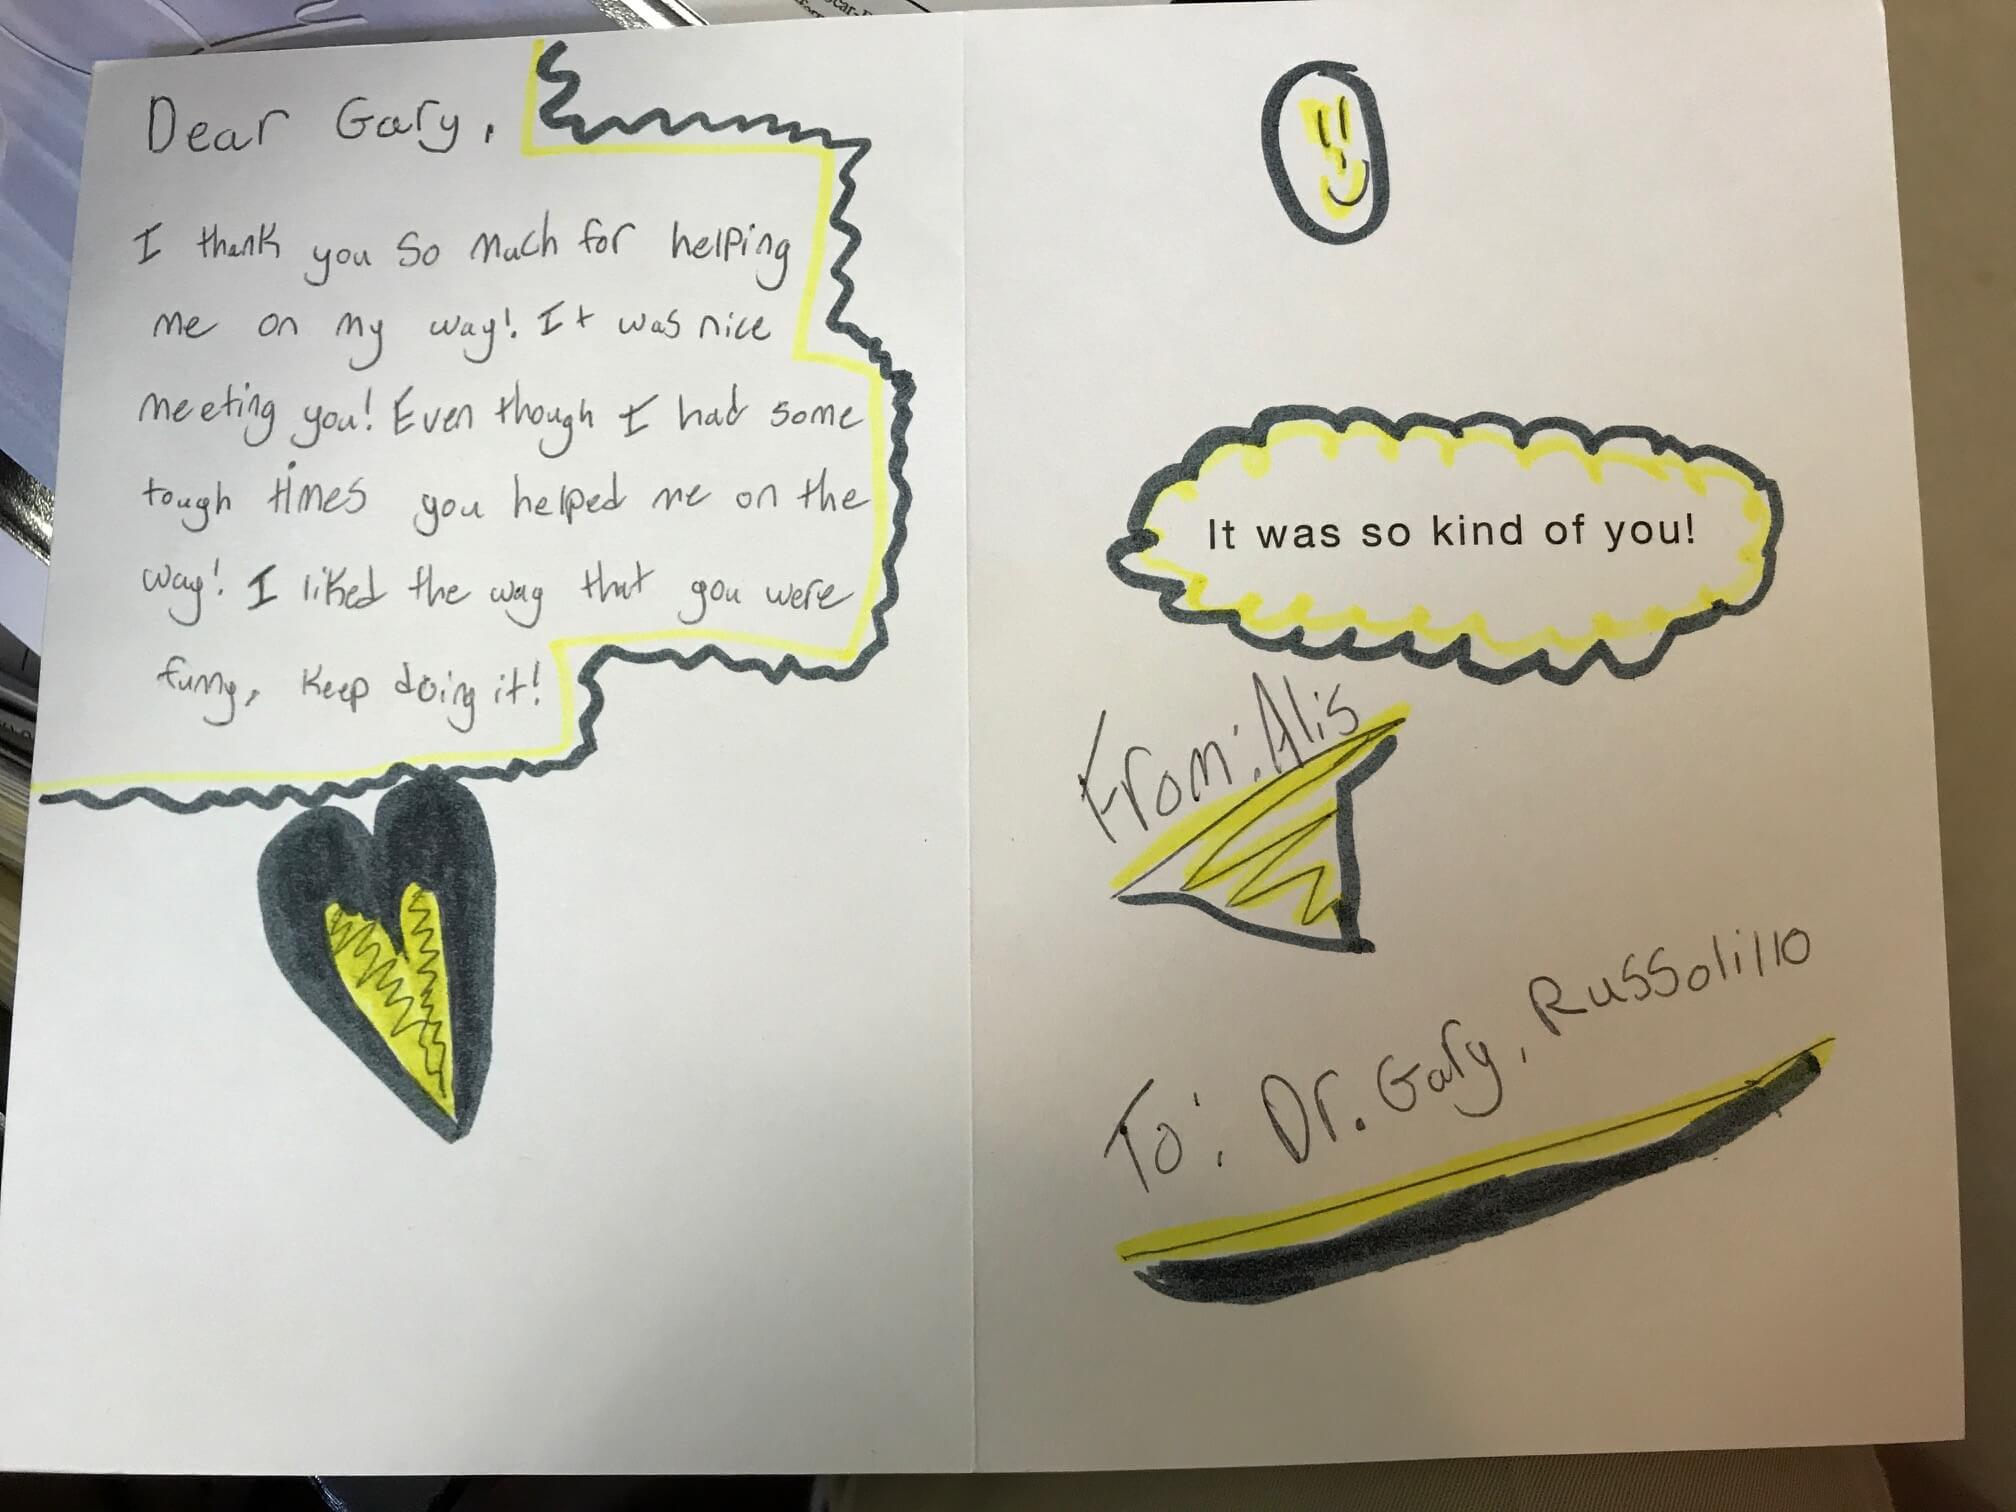 Dear Gary,
I thank you so much for helping
me on my way! It was nice
meeting you! Even though I had some
tough times you helped me on the
way! I liked the way that you were
funny, keep doing it!
It was so kind of you!
From: Alis
To: Dr. Gary, Russolillo